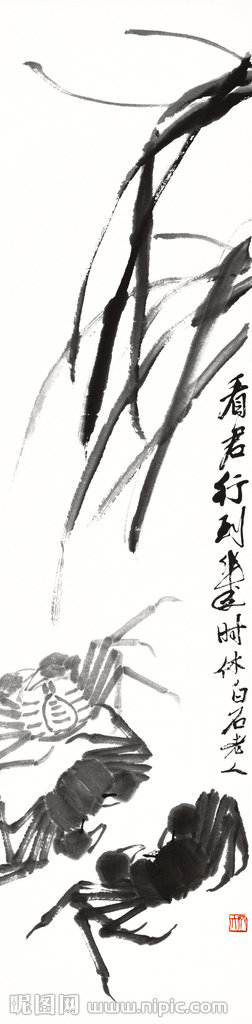 看君行到几时休白石老人
昵图网 www.nipic.com